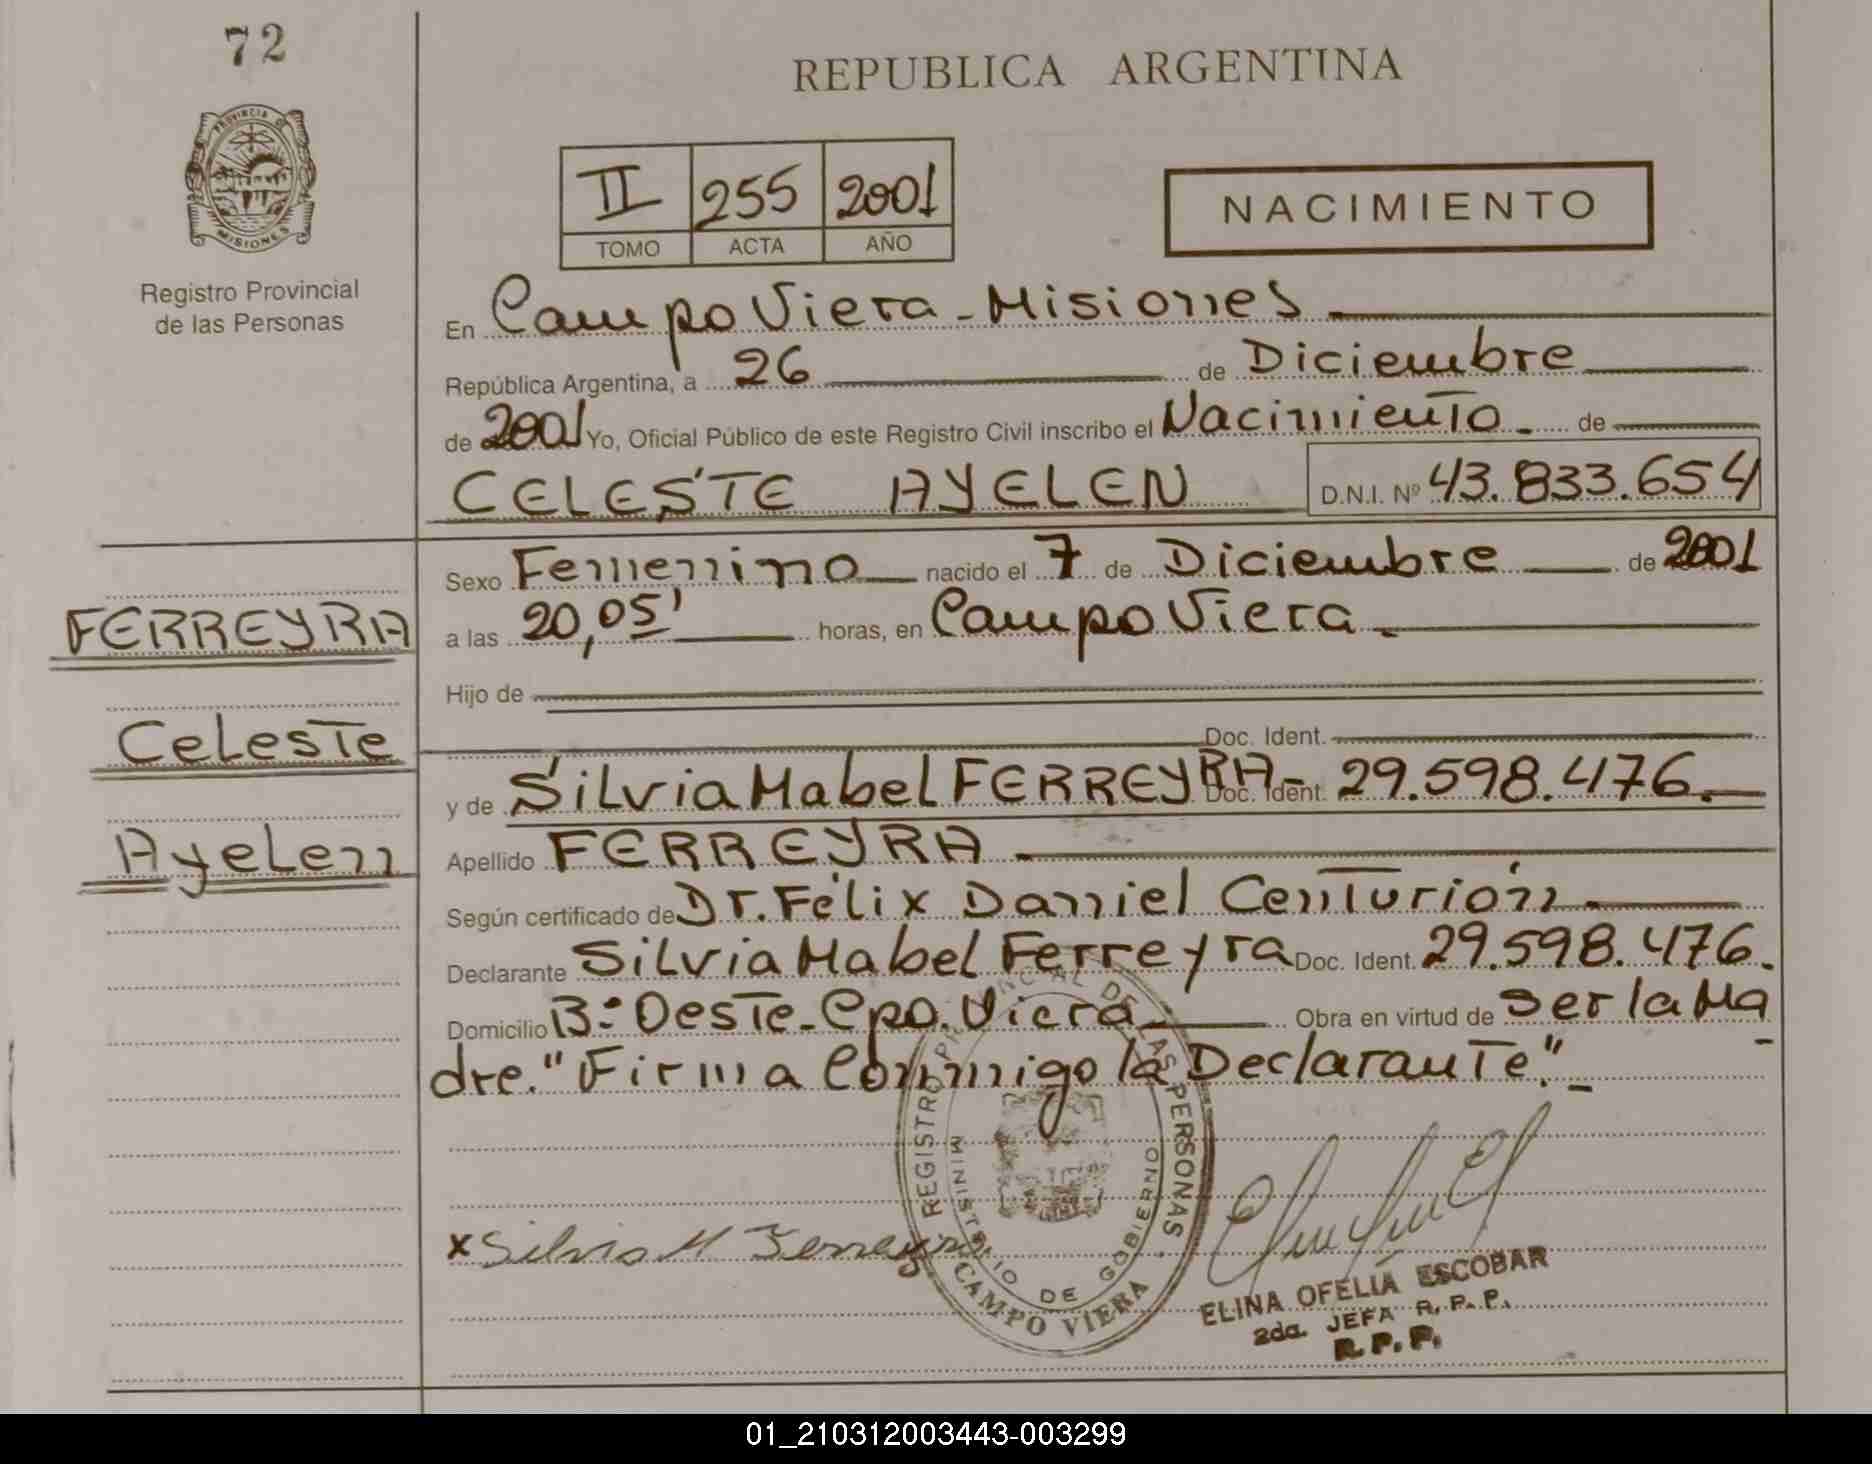 72
PROVINCIA DE
MISIONES
Registro Provincial
de las Personas
REPUBLICA ARGENTINA
II 255 2001
TOMO ACTA AÑO
NACIMIENTO
En Campo Viera - Misiones
República Argentina, a 26 de Diciembre
de 2001 Yo, Oficial Público de este Registro Civil inscribo el Nacimiento de
CELESTE AYELEN D.N.I. Nº 43.833.654
Sexo Femenino nacido el 7 de Diciembre de 2001
a las 20,05' horas, en Campo Viera.
Hijo de
Doc. Ident.
y de Silvia Mabel FERREYRA - Doc. Ident. 29.598.476.
Apellido FERREYRA
Según certificado de Dr. Félix Daniel Centurión
Declarante Silvia Mabel Ferreyra Doc. Ident. 29.598.476.
Domicilio B:º Oeste - Cpo. Viera Obra en virtud de Ser la Ma
dre. "Firma Conmigo la Declarante".-
FERREYRA
Celeste
Ayelen
x Silvia M Ferreyra
REGISTRO PROVINCIAL DE LAS PERSONAS
MINISTERIO DE GOBIERNO
CAMPO VIERA
ELINA OFELIA ESCOBAR
2da. JEFA R.P.P.
R.P.P.
01_210312003443-003299